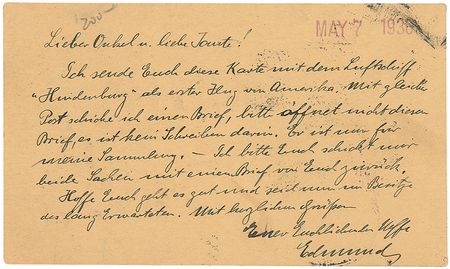 1200
MAY 7 1936
Lieber Onkel u. liebe Tante!
Ich sende Euch diese Karte mit dem Luftschiff
"Hindenburg" als erster Flug von Amerika. Mit gleicher
Post schicke ich einen Brief, bitte öffnet nicht diesen
Brief, es ist kein Schreiben darin. Er ist nur für
meine Sammlung. — Ich bitte Euch schickt mir
beide Sachen mit einen Brief von Euch zurück.
Hoffe Euch geht es gut und seit nun im Besitze
des lang Erwarteten. Mit herzlichen Grüßen
Euer Neffe
Edmund